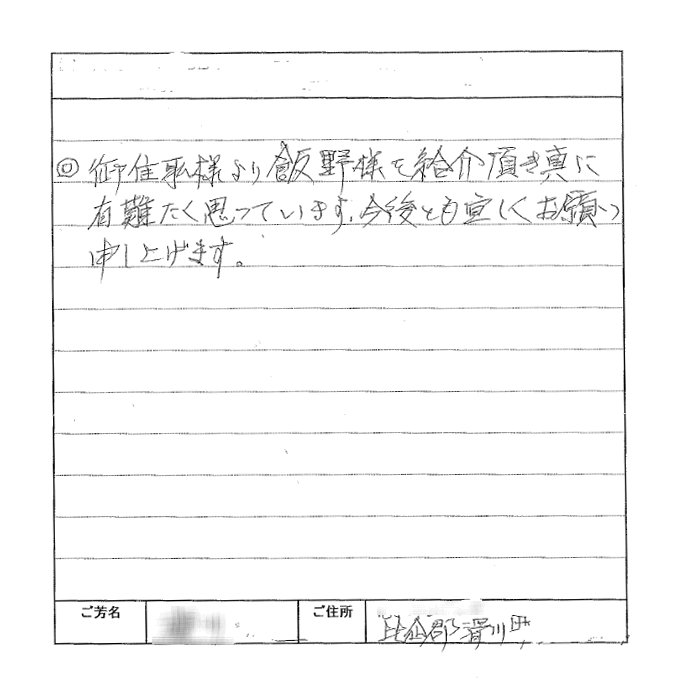 ◎御住職様より飯野様を紹介頂き真に
有難たく思っています。今後とも宜しくお願い
申し上げます。
ご芳名 ご住所 比企郡滑川町